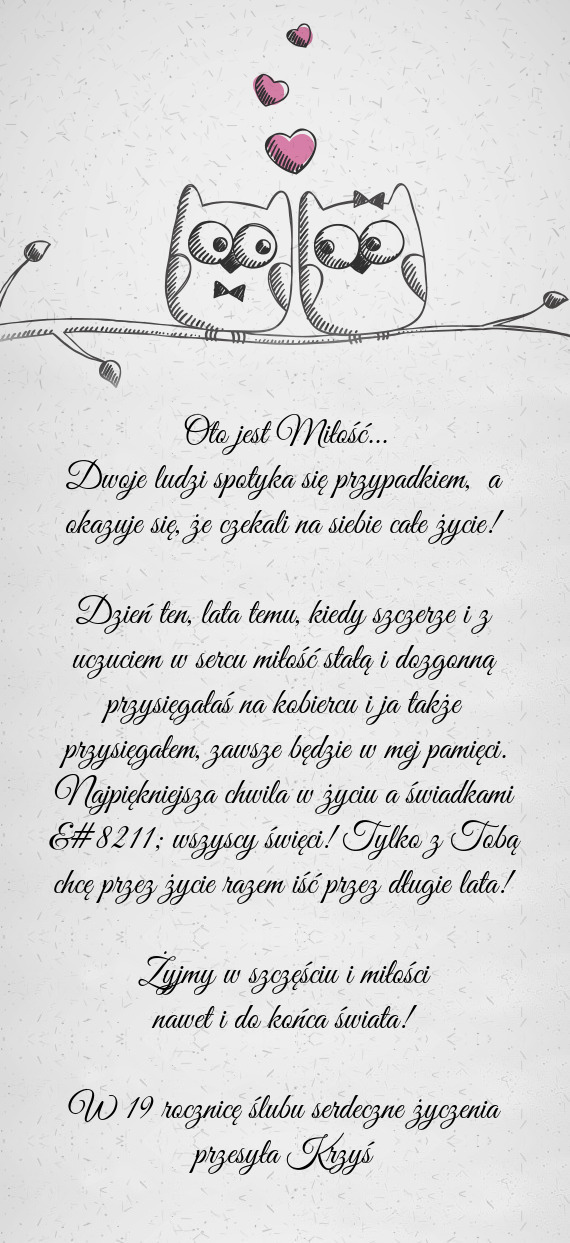 Oto jest Miłość...
Dwoje ludzi spotyka się przypadkiem,  a
okazuje się, że czekali na siebie całe życie!
Dzień ten, lata temu, kiedy szczerze i z
uczuciem w sercu miłość stałą i dozgonną
przysięgałaś na kobiercu i ja także
przysięgałem, zawsze będzie w mej pamięci.
Najpiękniejsza chwila w życiu a świadkami
&#8211; wszyscy święci! Tylko z Tobą
chcę przez życie razem iść przez długie lata!
Żyjmy w szczęściu i miłości
nawet i do końca świata!
W 19 rocznicę ślubu serdeczne życzenia
przesyła Krzyś